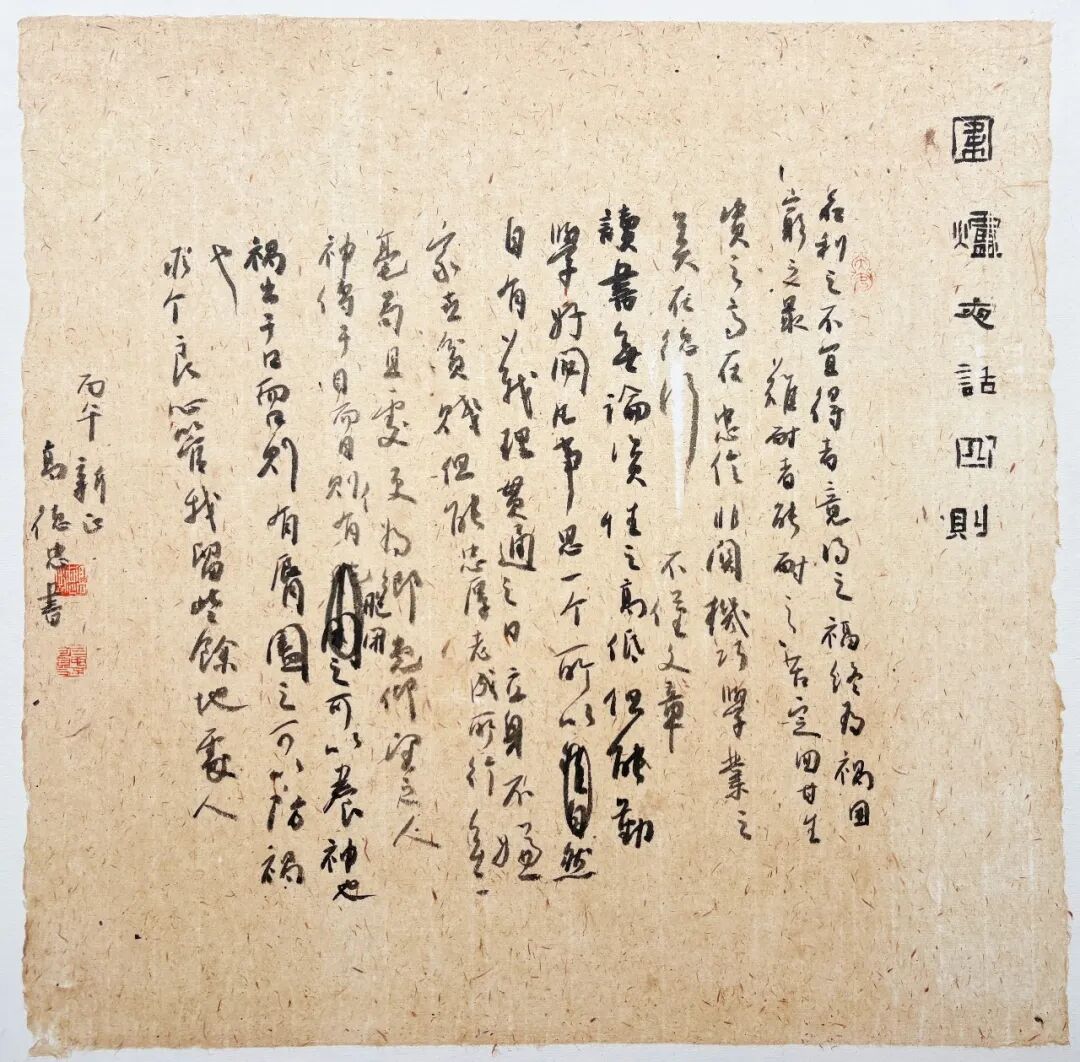 圍爐夜話四則
名利之不宜得者竟得之福终为祸困
窮之最難耐者能耐之苦定回甘生
资之高在忠信非関機巧學業之
美在德行不僅文章
讀書無論资性之高低但能勤
學好问凡事思一个所以自然
自有義理貫通之日立身不嫌
家世贫贱但能忠厚老成所行無一
毫苟且處更为鄉党仰望之人
神傳于目而目则有胞闭之可以養神也
祸出于口而口则有唇之可以防祸
也
求个良心管我留些餘地處人
丙午新正
高德忠書